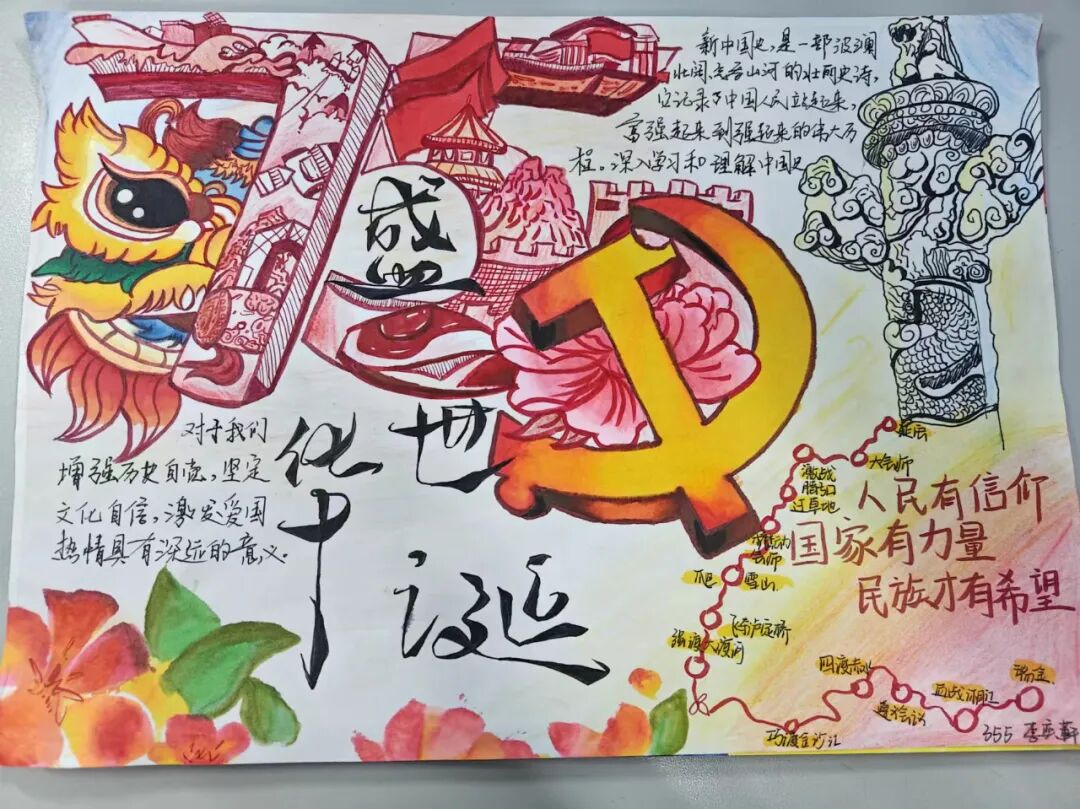 新中国史，是一部波澜
壮阔，气吞山河的壮丽史诗，
它记录了中国人民站起来，
富强起来到强起来的伟大历
程。深入学习和理解中国史
对于我们
增强历史自觉，坚定
文化自信，激发爱国
热情具有深远的意义。
盛
世
华
诞
人民有信仰
国家有力量
民族才有希望
延安
大会师
激战
腊子口
过草地
会师
爬雪山
飞夺泸定桥
强渡大渡河
巧渡金沙江
四渡赤水
遵义会议
血战湘江
瑞金
355 李